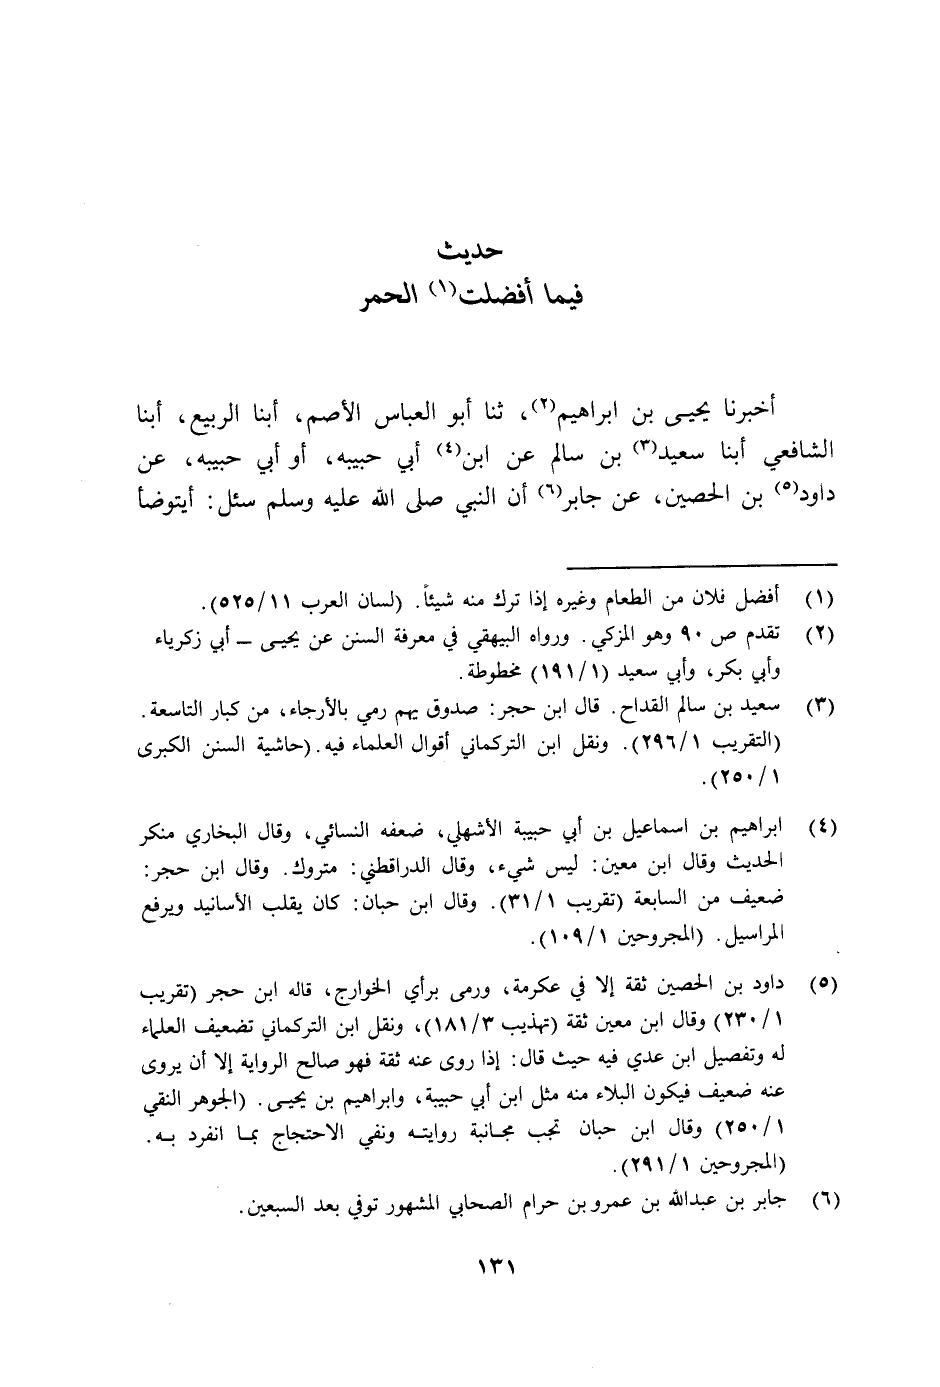 حديث
فيما أفضلت(١) الحمر
أخبرنا يحيى بن ابراهيم(٢)، ثنا أبو العباس الأصم، أبنا الربيع، أبنا
الشافعي أبنا سعيد(٣) بن سالم عن ابن(٤) أبي حبيبه، أو أبي حبيبه، عن
داود(٥) بن الحصين، عن جابر(٦) أن النبي صلى الله عليه وسلم سئل: أيتوضأ
(١) أفضل فلان من الطعام وغيره إذا ترك منه شيئاً. (لسان العرب ١١/٥٢٥).
(٢) تقدم ص ٩٠ وهو المزكي. ورواه البيهقي في معرفة السنن عن يحيى ــ أبي زكرياء
وأبي بكر، وأبي سعيد (١/١٩١) مخطوطة.
(٣) سعيد بن سالم القداح. قال ابن حجر: صدوق يهم رمي بالأرجاء، من كبار التاسعة.
(التقريب ١/٢٩٦). ونقل ابن التركماني أقوال العلماء فيه. (حاشية السنن الكبرى
١/٢٥٠).
(٤) ابراهيم بن اسماعيل بن أبي حبيبة الأشهلي، ضعفه النسائي، وقال البخاري منكر
الحديث وقال ابن معين: ليس شيء، وقال الدراقطني: متروك. وقال ابن حجر:
ضعيف من السابعة (تقريب ١/٣١). وقال ابن حبان: كان يقلب الأسانيد ويرفع
المراسيل. (المجروحين ١/١٠٩).
(٥) داود بن الحصين ثقة إلا في عكرمة، ورمى برأي الخوارج، قاله ابن حجر (تقريب
١/٢٣٠) وقال ابن معين ثقة (تهذيب ٣/١٨١)، ونقل ابن التركماني تضعيف العلماء
له وتفصيل ابن عدي فيه حيث قال: إذا روى عنه ثقة فهو صالح الرواية إلا أن يروى
عنه ضعيف فيكون البلاء منه مثل ابن أبي حبيبة، وابراهيم بن يحيى. (الجوهر النقي
١/٢٥٠) وقال ابن حبان تجب مجانبة روايته ونفي الاحتجاج بما انفرد به.
(المجروحين ١/٢٩١).
(٦) جابر بن عبدالله بن عمرو بن حرام الصحابي المشهور توفي بعد السبعين.
١٣١